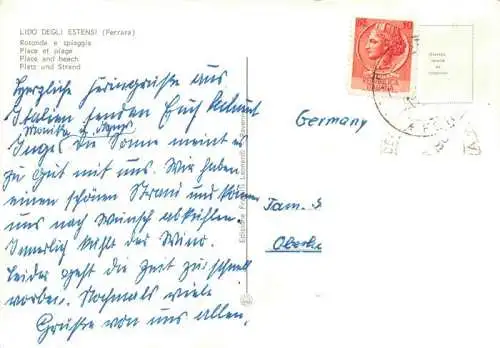 LIDO DEGLI ESTENSI (Ferrara)
Rotonda e spiaggia
Place et plage
Place and beach
Platz und Strand
Herzliche Feriengrüße aus
Italien senden Euch Helmut
Monika u.
Inge. Die Sonne meint es
zu gut mit uns. Wir haben
einen schönen Strand und können
uns nach Wunsch abkühlen.
Innerlich kühlt der Wino.
Leider geht die Zeit zu schnell
vorbei. Nochmals viele
Grüße von uns allen.
Germany
Fam. S
Oberke